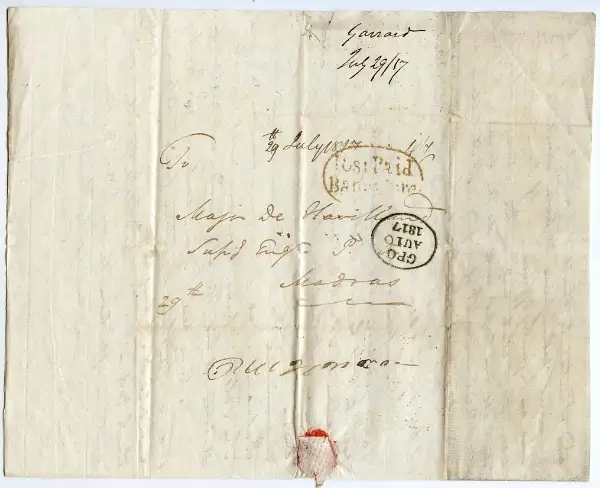 Garrard
July 29/17
29th July 1817
To
Post Paid
Bangalore
Major De Havilland
Supd Engr P.
Madras
29th
GPO
AU 10
1817